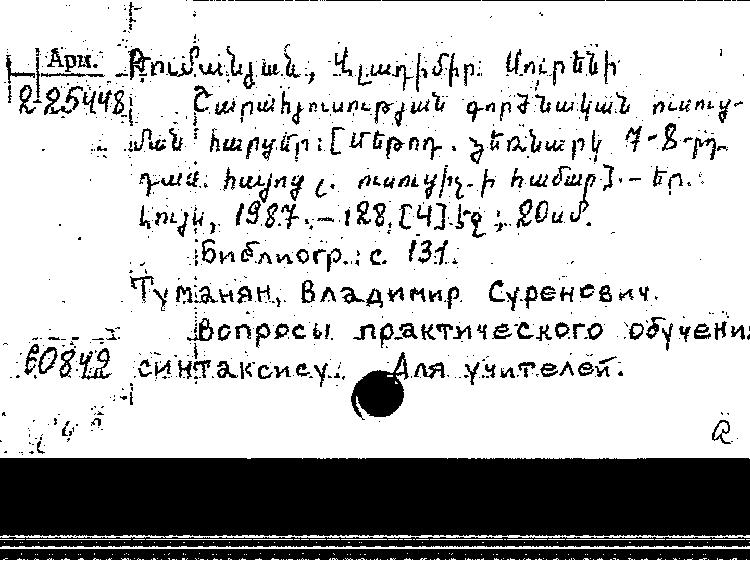 Арм.
2-25448
Թումանյան, Վլադիմիր Սուրենի
Շարահյուսության գործնական ուսուց-
ման հարցեր: [Մեթոդ. ձեռնարկ 7-8-րդ
դաս. հայոց լ. ուսուցիչ-ի համար]. - Եր.:
Լույս, 1987. - 128, [4] էջ ; 20սմ.
Библиогр.: с. 131.
Туманян, Владимир Суренович.
Вопросы практического обучения
60842 синтаксису. Для учителей.